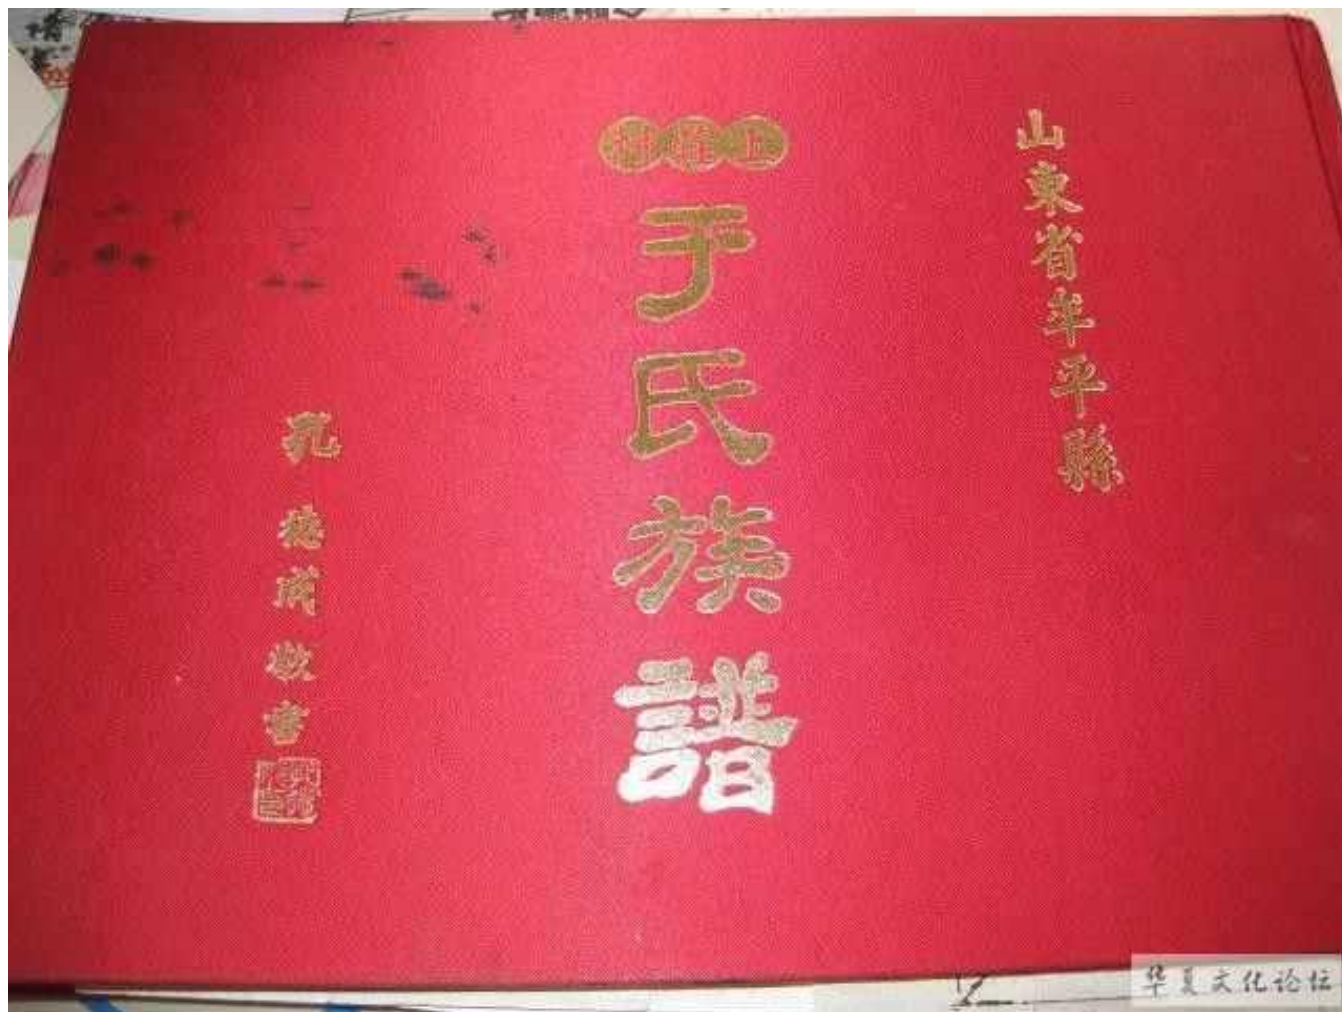 山東省牟平縣
于氏族譜
孔德成敬書
华夏文化论坛